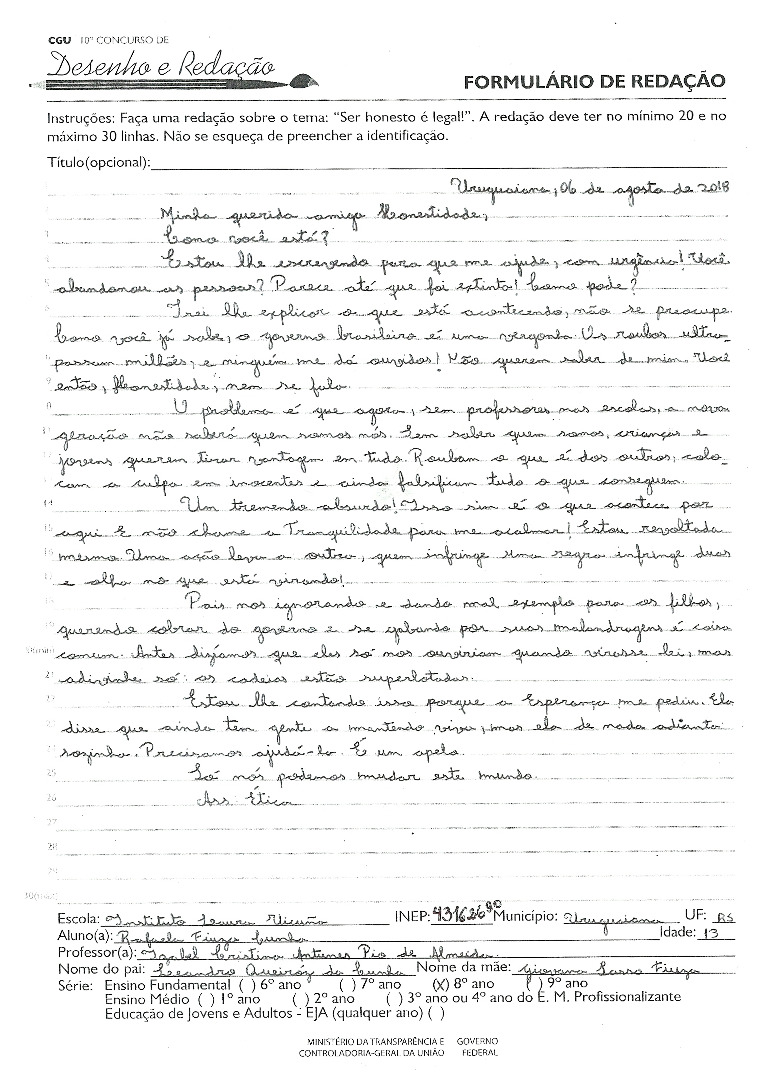 CGU 10º CONCURSO DE
Desenho e Redação
FORMULÁRIO DE REDAÇÃO
Instruções: Faça uma redação sobre o tema: “Ser honesto é legal!”. A redação deve ter no mínimo 20 e no
máximo 30 linhas. Não se esqueça de preencher a identificação.
Título(opcional):
Uruguaiana, 06 de agosto de 2018
Minha querida amiga Honestidade,
Como você está?
Estou lhe escrevendo para que me ajude, com urgência! Você
abandonou as pessoas? Parece até que foi extinta! Como pode?
Irei lhe explicar o que está acontecendo, não se preocupe.
Como você já sabe, o governo brasileiro é uma vergonha. Os roubos ultra-
passam milhões, e ninguém me dá ouvidos! Não querem saber de mim. Você
então, Honestidade, nem se fala.
O problema é que agora, sem professores nas escolas, a nova
geração não saberá quem somos nós. Sem saber quem somos, crianças e
jovens querem tirar vantagem em tudo. Roubam o que é dos outros, colo-
cam a culpa em inocentes e ainda falsificam tudo o que conseguem.
14 Um tremendo absurdo! Isso sim é o que acontece por
aqui. E não chame a Tranquilidade para me acalmar! Estou revoltada
mesmo. Uma ação leva a outra, quem infringe uma regra infringe duas
e olha no que está virando!
Pais nos ignorando e dando mal exemplo para os filhos,
querendo cobrar do governo e se gabando por suas malandragens é coisa
comum. Antes dizíamos que eles só nos ouviriam quando virasse lei, mas
21 adivinhe só: as cadeias estão superlotadas.
Estou lhe contando isso porque a Esperança me pediu. Ela
disse que ainda tem gente a mantendo viva, mas ela de nada adianta
sozinha. Precisamos ajudá-la. É um apelo.
25 Só nós podemos mudar este mundo.
26 Ass. Ética
27
28
29
Escola: Instituto Laura Vicuña INEP: Município: Uruguaiana UF: RS
Aluno(a): Rafaela Fiuza Cunha Idade: 13
Professor(a): Izabel Cristina Antunes Pio de Almeida
Nome do pai: Leandro Queiróz da Cunha Nome da mãe: Giovana Fiuza
Série: Ensino Fundamental ( ) 6º ano ( ) 7º ano (X) 8º ano ( ) 9º ano
Ensino Médio ( ) 1º ano ( ) 2º ano ( ) 3º ano ou 4º ano do E. M. Profissionalizante
Educação de Jovens e Adultos - EJA (qualquer ano) ( )
MINISTÉRIO DA TRANSPARÊNCIA E GOVERNO
CONTROLADORIA-GERAL DA UNIÃO FEDERAL